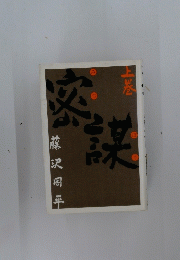 上巻
密謀
藤沢周平